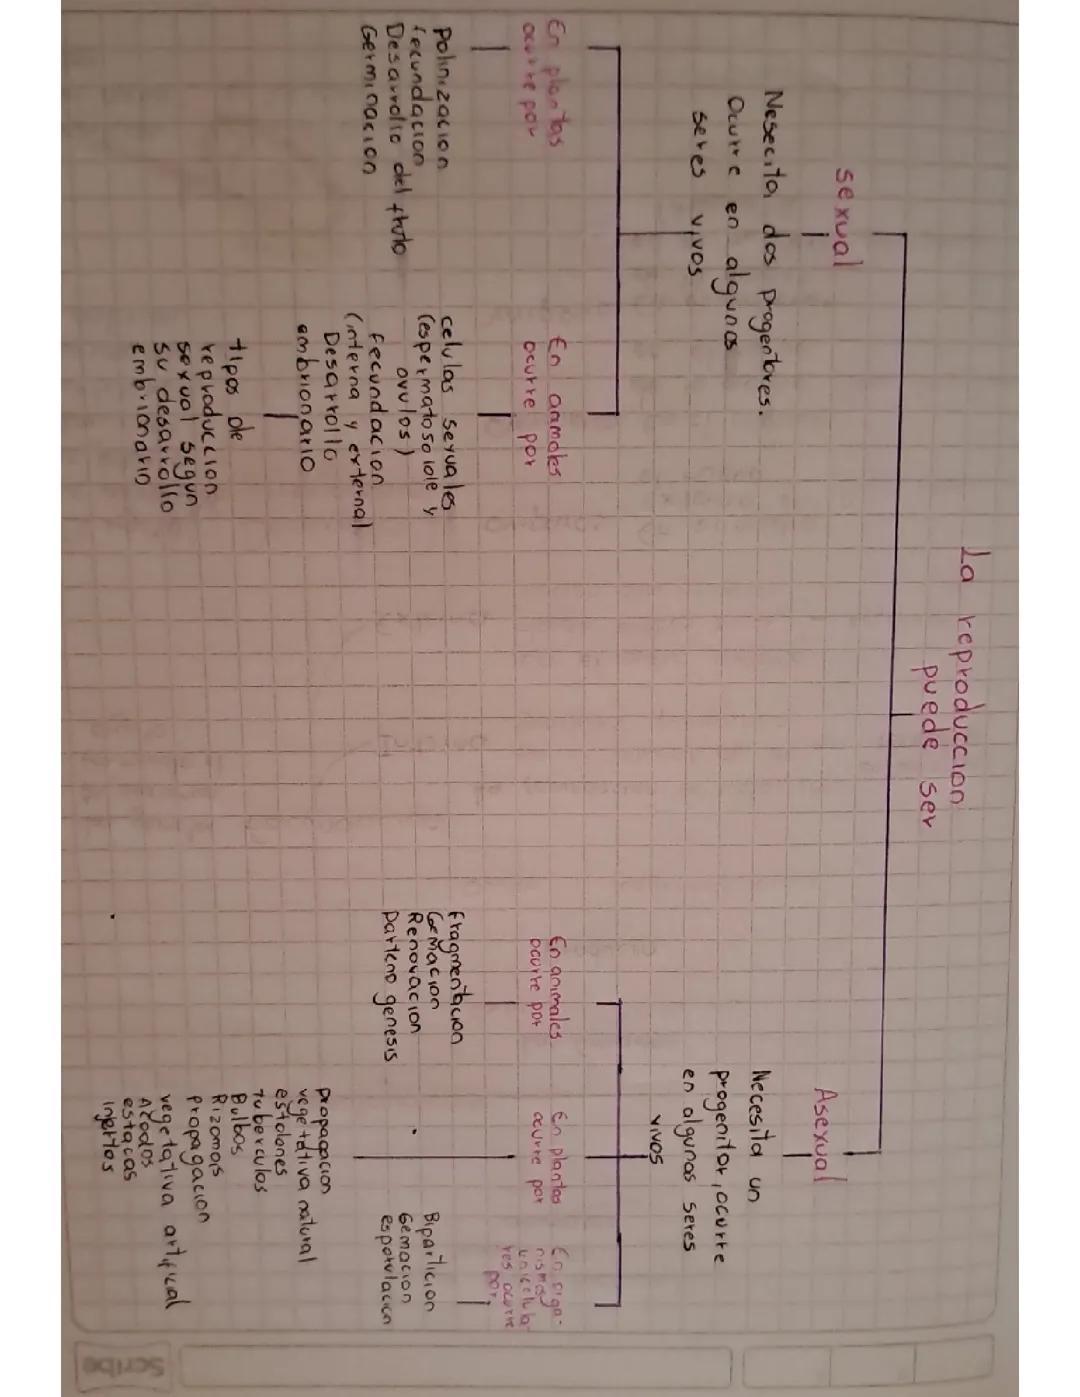 La reproduccion
puede ser
sexual
Nesecita dos progenitores.
Ocurre en algunos
seres vivos
En plantas
ocurre por
Polinizacion
fecundacion
Desarrollo del fruto
Germinacion
En animales
ocurre por
celulas sexuales
(espermatosoide y
ovulos)
fecundacion
(interna y external
Desarrollo
embrionario
tipos de
reproduccion
sexual segun
su desarrollo
embrionario
Asexual
Necesita un
progenitor, ocurre
en algunos seres
vivos
En animales
ocurre por
fragmentacion
Gemacion
Renovacion
parteno genesis
En plantas
ocurre por
propagacion
vegetativa natural
estolones
tuberculos
Bulbos
Rizomas
propagacion
vegetativa artificial
Acodos
estacas
injertos
En orga-
nismos
unicelula-
res ocurre
por.
Biparticion
Gemacion
esporulacion
Scribe